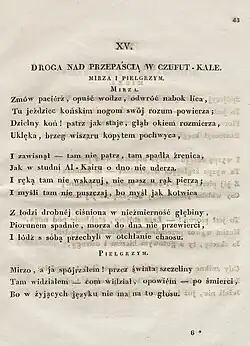 43
XV.
DROGA NAD PRZEPAŚCIĄ W CZUFUT-KALE.
MIRZA I PIELGRZYM.
MIRZA.
Zmów paciérz, opuść wodze, odwróć nabok lica,
Tu jeździec końskim nogom swój rozum powierza;
Dzielny koń! patrz jak staje, głąb okiem rozmierza,
Uklęka, brzeg wiszaru kopytem pochwyca,
I zawisnął — tam nie patrz, tam spadła źrenica,
Jak w studni Al-Kairu o dno nie uderza.
I ręką tam nie wskazuj, nie masz u rąk pierza;
I myśli tam nie puszczaj, bo myśl jak kotwica
Z łodzi drobnéj ciśniona w niezmierność głębiny,
Piorunem spadnie, morza do dna nie przewierci,
I łódź s sobą przechyli w otchłanie chaosu.
PIELGRZYM.
Mirzo, a ja spójrzałem! przez świata szczeliny
Tam widziałem — com widział, opowiém — po śmierci,
Bo w żyjących języku nie ma na to głosu.
6 *